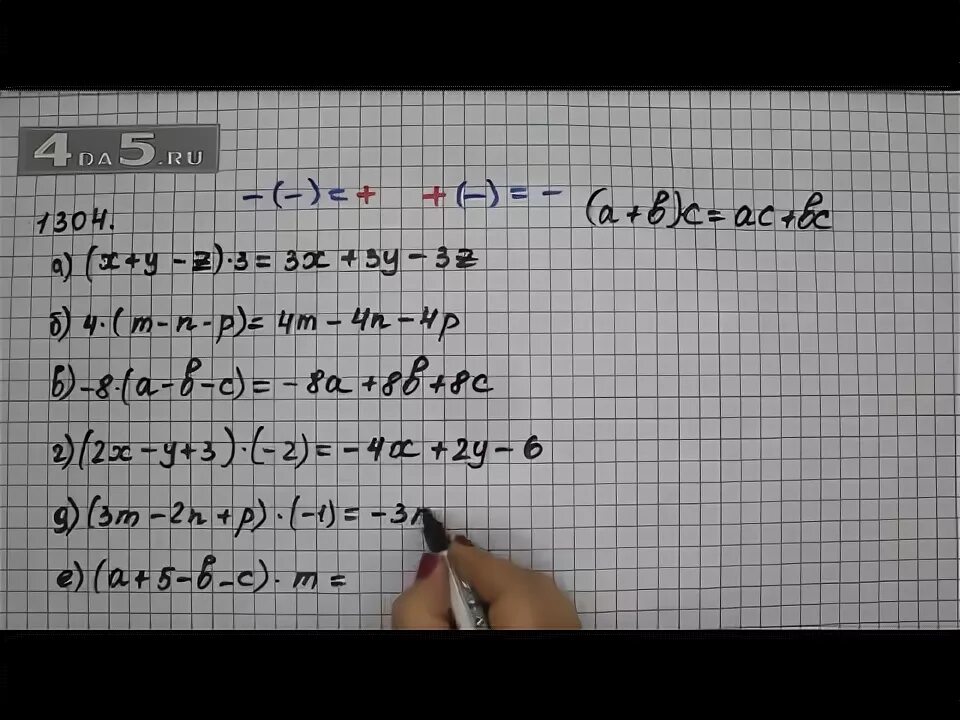 4DA5.RU
-(-)=+ +(-)=- (a+b)c=ac+bc
1304.
а) (x+y-z)·3=3x+3y-3z
б) 4·(m-n-p)=4m-4n-4p
в) -8·(a-b-c)=-8a+8b+8c
г) (2x-y+3)·(-2)=-4x+2y-6
д) (3m-2n+p)·(-1)=-3
е) (a+5-b-c)·m=